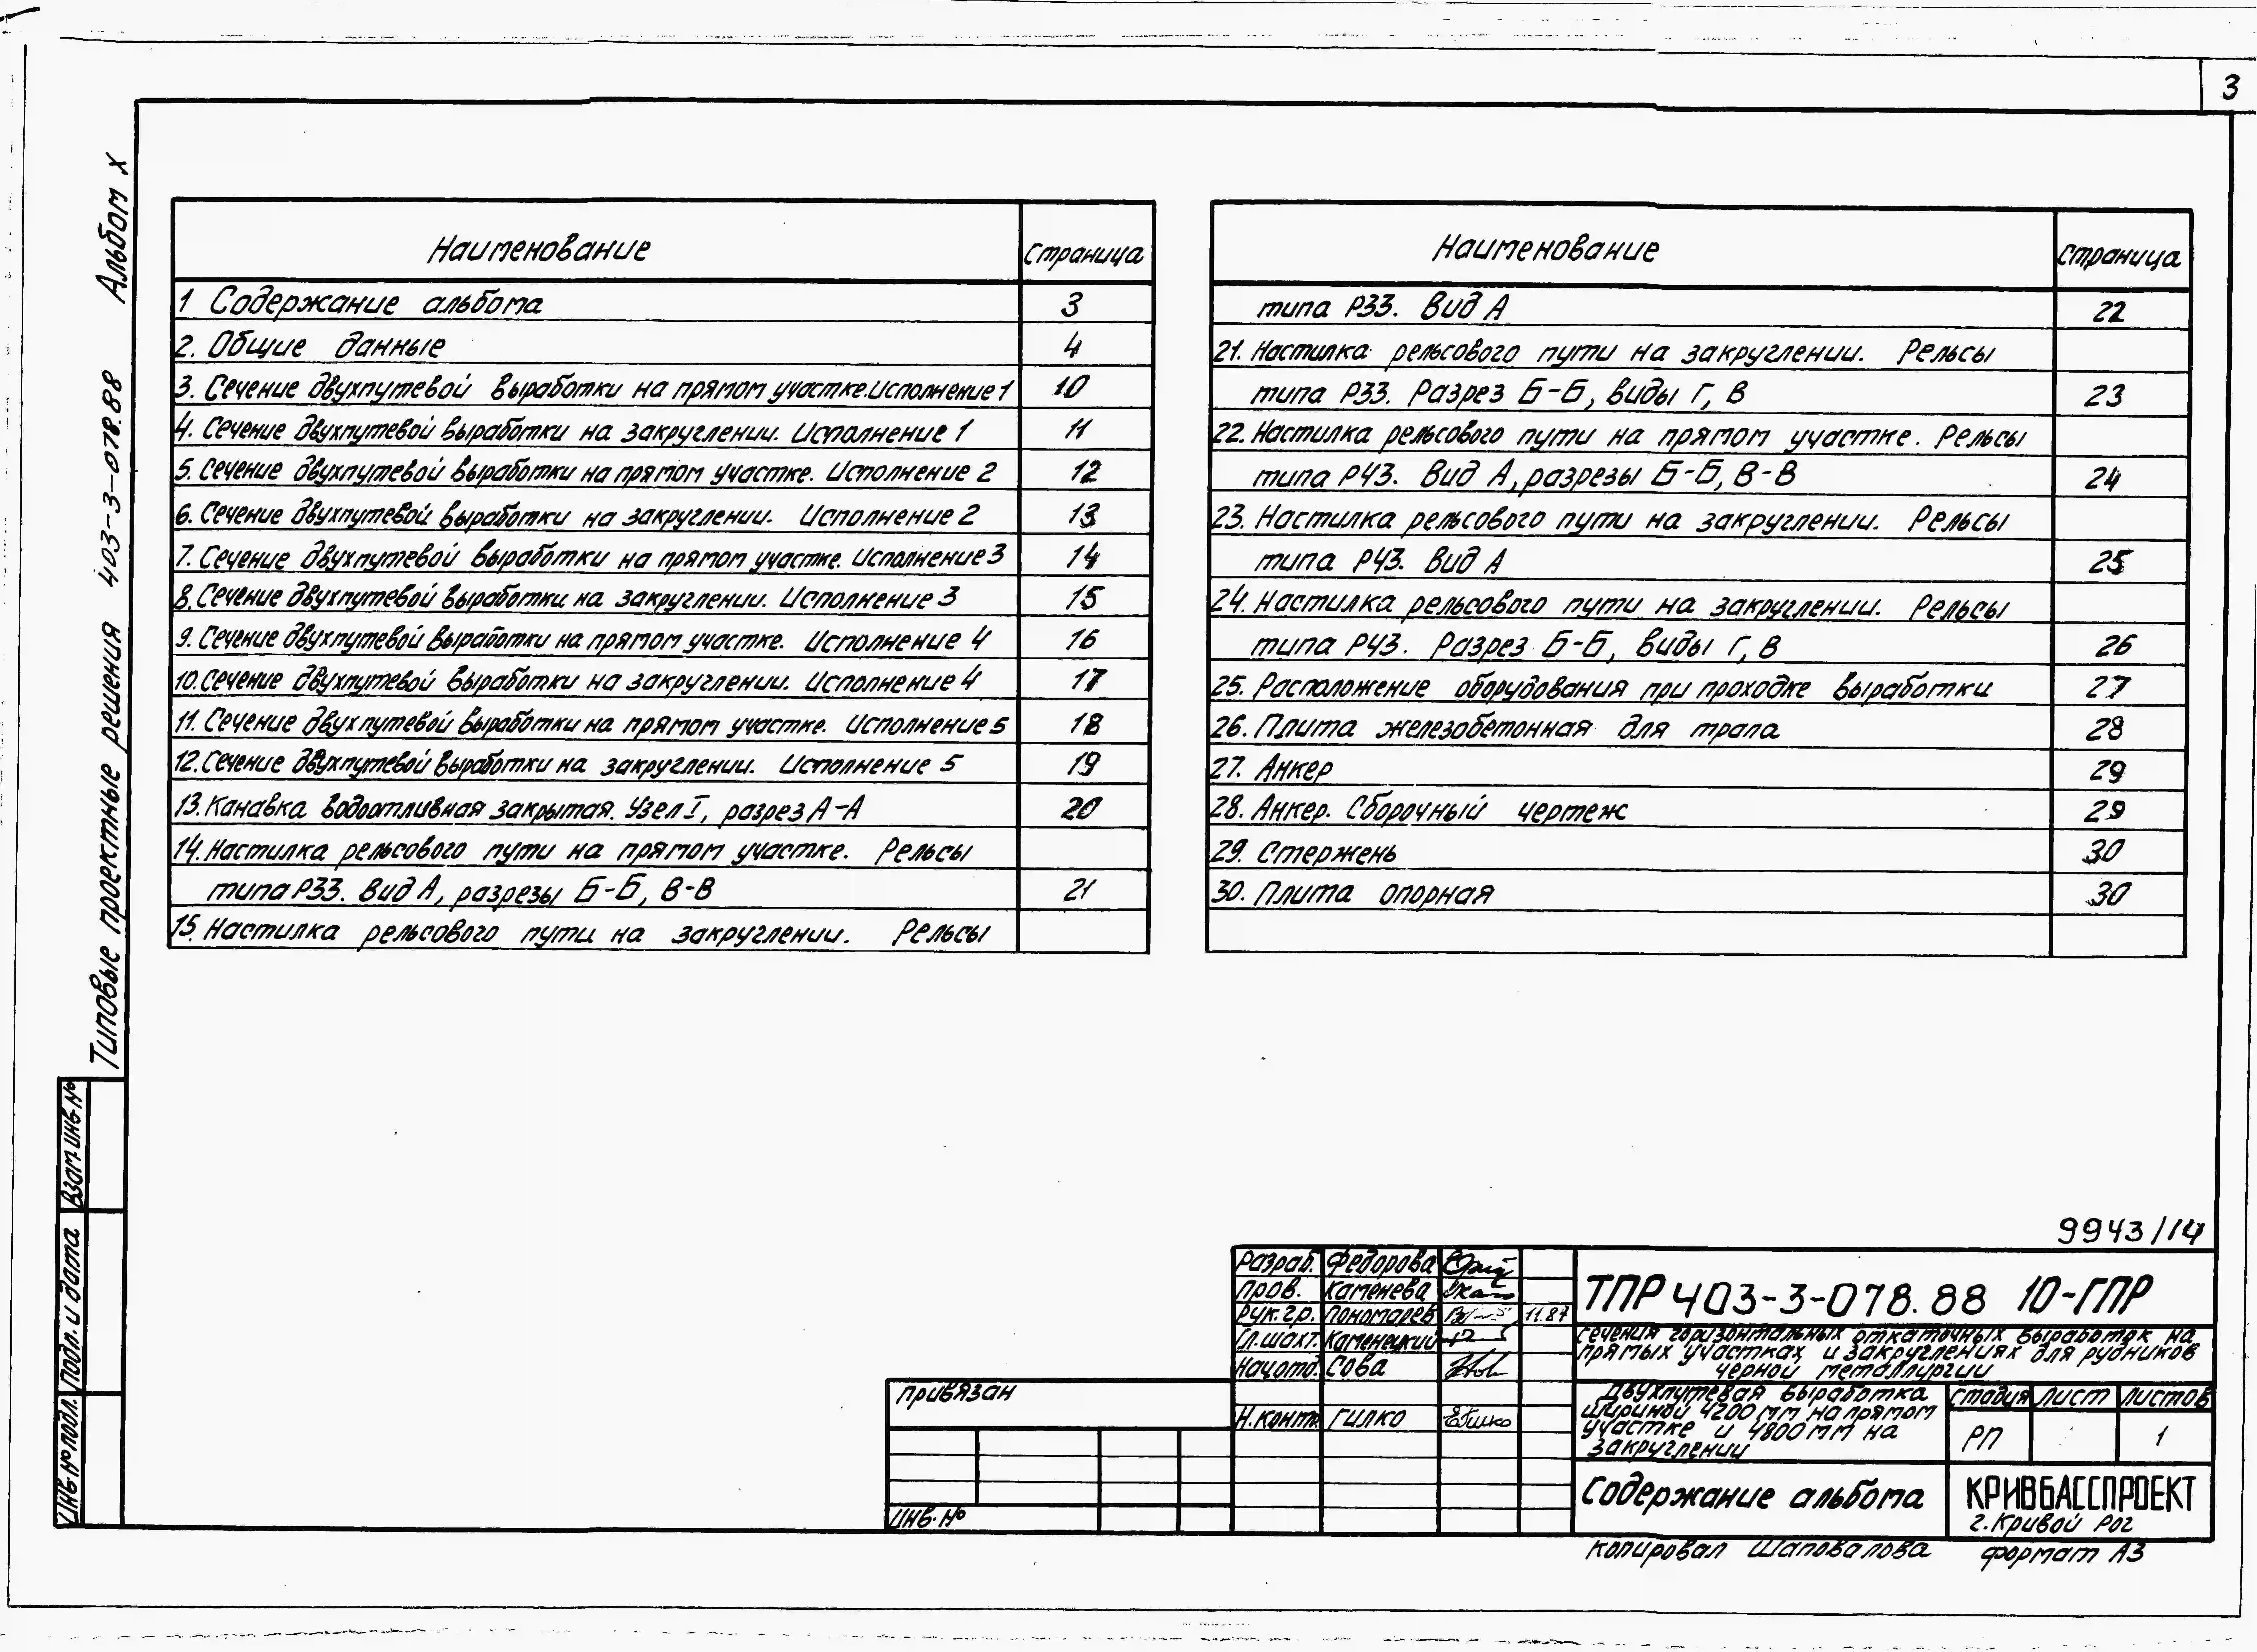 3
Типовые проектные решения 403-3-078.88 Альбом X
Наименование Страница
1 Содержание альбома 3
2. Общие данные 4
3. Сечение двухпутевой выработки на прямом участке. Исполнение 1 10
4. Сечение двухпутевой выработки на закруглении. Исполнение 1 11
5. Сечение двухпутевой выработки на прямом участке. Исполнение 2 12
6. Сечение двухпутевой выработки на закруглении. Исполнение 2 13
7. Сечение двухпутевой выработки на прямом участке. Исполнение 3 14
8. Сечение двухпутевой выработки на закруглении. Исполнение 3 15
9. Сечение двухпутевой выработки на прямом участке. Исполнение 4 16
10. Сечение двухпутевой выработки на закруглении. Исполнение 4 17
11. Сечение двухпутевой выработки на прямом участке. Исполнение 5 18
12. Сечение двухпутевой выработки на закруглении. Исполнение 5 19
13. Канавка водоотливная закрытая. Узел I, разрез А-А 20
14. Настилка рельсового пути на прямом участке. Рельсы
типа Р33. Вид А, разрезы Б-Б, В-В 21
15. Настилка рельсового пути на закруглении. Рельсы
Наименование Страница
типа Р33. Вид А 22
21. Настилка рельсового пути на закруглении. Рельсы
типа Р33. Разрез Б-Б, виды Г, В 23
22. Настилка рельсового пути на прямом участке. Рельсы
типа Р43. Вид А, разрезы Б-Б, В-В 24
23. Настилка рельсового пути на закруглении. Рельсы
типа Р43. Вид А 25
24. Настилка рельсового пути на закруглении. Рельсы
типа Р43. Разрез Б-Б, виды Г, В 26
25. Расположение оборудования при проходке выработки 27
26. Плита железобетонная для трапа 28
27. Анкер 29
28. Анкер. Сборочный чертеж 29
29. Стержень 30
30. Плита опорная 30
Взам. инв. №
Подп. и дата
Инв. № подл.
9943/14
Разраб. Федорова
Пров. Каменева
Рук. гр. Пономарев 11.87
Гл. шахт. Каменецкий
Нач. отд. Сова
Н. контр. Гилко
Привязан
Инв. №
ТПР 403-3-078.88 10-ГПР
Сечения горизонтальных откаточных выработок на
прямых участках и закруглениях для рудников
черной металлургии
Двухпутевая выработка
шириной 4200 мм на прямом
участке и 4800 мм на
закруглении
Стадия Лист Листов
РП 1
Содержание альбома
КРИВБАССПРОЕКТ
г. Кривой Рог
Копировал Шаповалова Формат А3